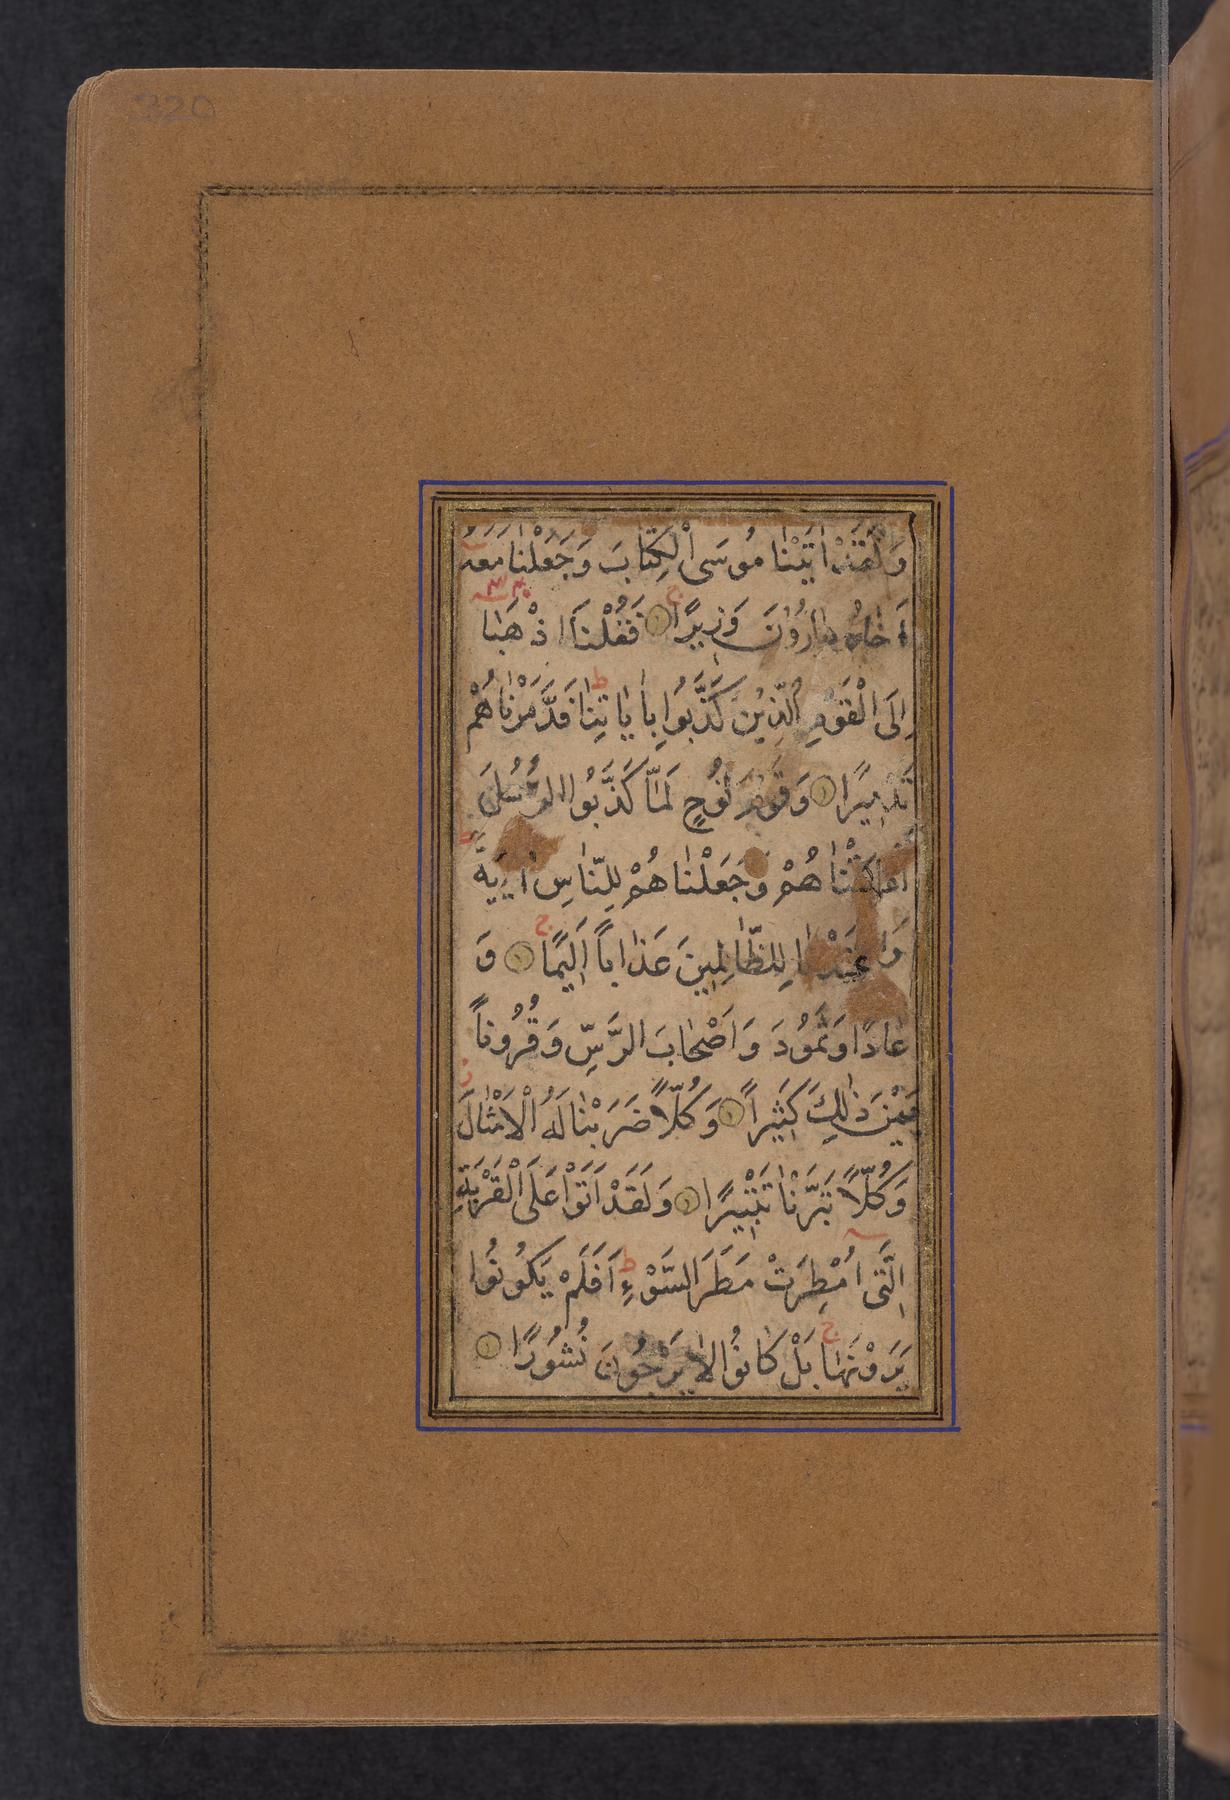 320
وَلَقَدْ اٰتَيْنٰا مُوسَى الْكِتٰابَ وَجَعَلْنٰا مَعَهُ
اَخٰاهُ هٰارُونَ وَزِيرًا فَقُلْنَا اذْهَبٰا
اِلَى الْقَوْمِ الَّذِيْنَ كَذَّبُوا بِاٰيٰاتِنٰا فَدَمَّرْنٰاهُمْ
تَدْمِيرًا وَقَوْمَ نُوحٍ لَمّٰا كَذَّبُوا الرُّسُلَ
اَغْرَقْنٰاهُمْ وَجَعَلْنٰاهُمْ لِلنّٰاسِ اٰيَةً
وَاَعْتَدْنٰا لِلظّٰالِمِينَ عَذٰاباً اَلِيمًا وَ
عٰادًا وَثَمُودَ وَاَصْحٰابَ الرَّسِّ وَقُرُوناً
بَيْنَ ذٰلِكَ كَثِيراً وَكُلّاً ضَرَبْنٰا لَهُ الْاَمْثٰالَ
وَكُلّاً تَبَّرْنٰا تَتْبِيرًا وَلَقَدْ اَتَوْا عَلَى الْقَرْيَةِ
الَّتِى اُمْطِرَتْ مَطَرَ السَّوْءِ اَفَلَمْ يَكُونُوا
يَرَوْنَهٰا بَلْ كٰانُوا لاٰ يَرْجُونَ نُشُورًا